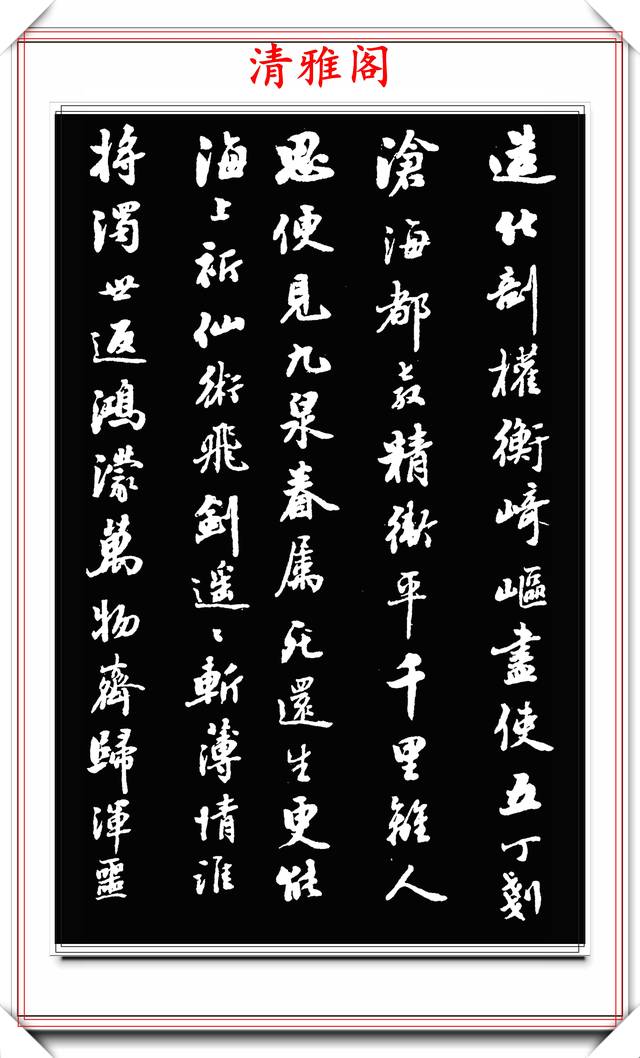 清雅阁
造化剖權衡崎嶇盡使五丁剗
滄海都教精衛平千里離人
思便見九泉眷属死還生更能
海上祈仙術飛劍遥〻斬薄情誰
将濁世返鴻濛萬物齊歸渾噩